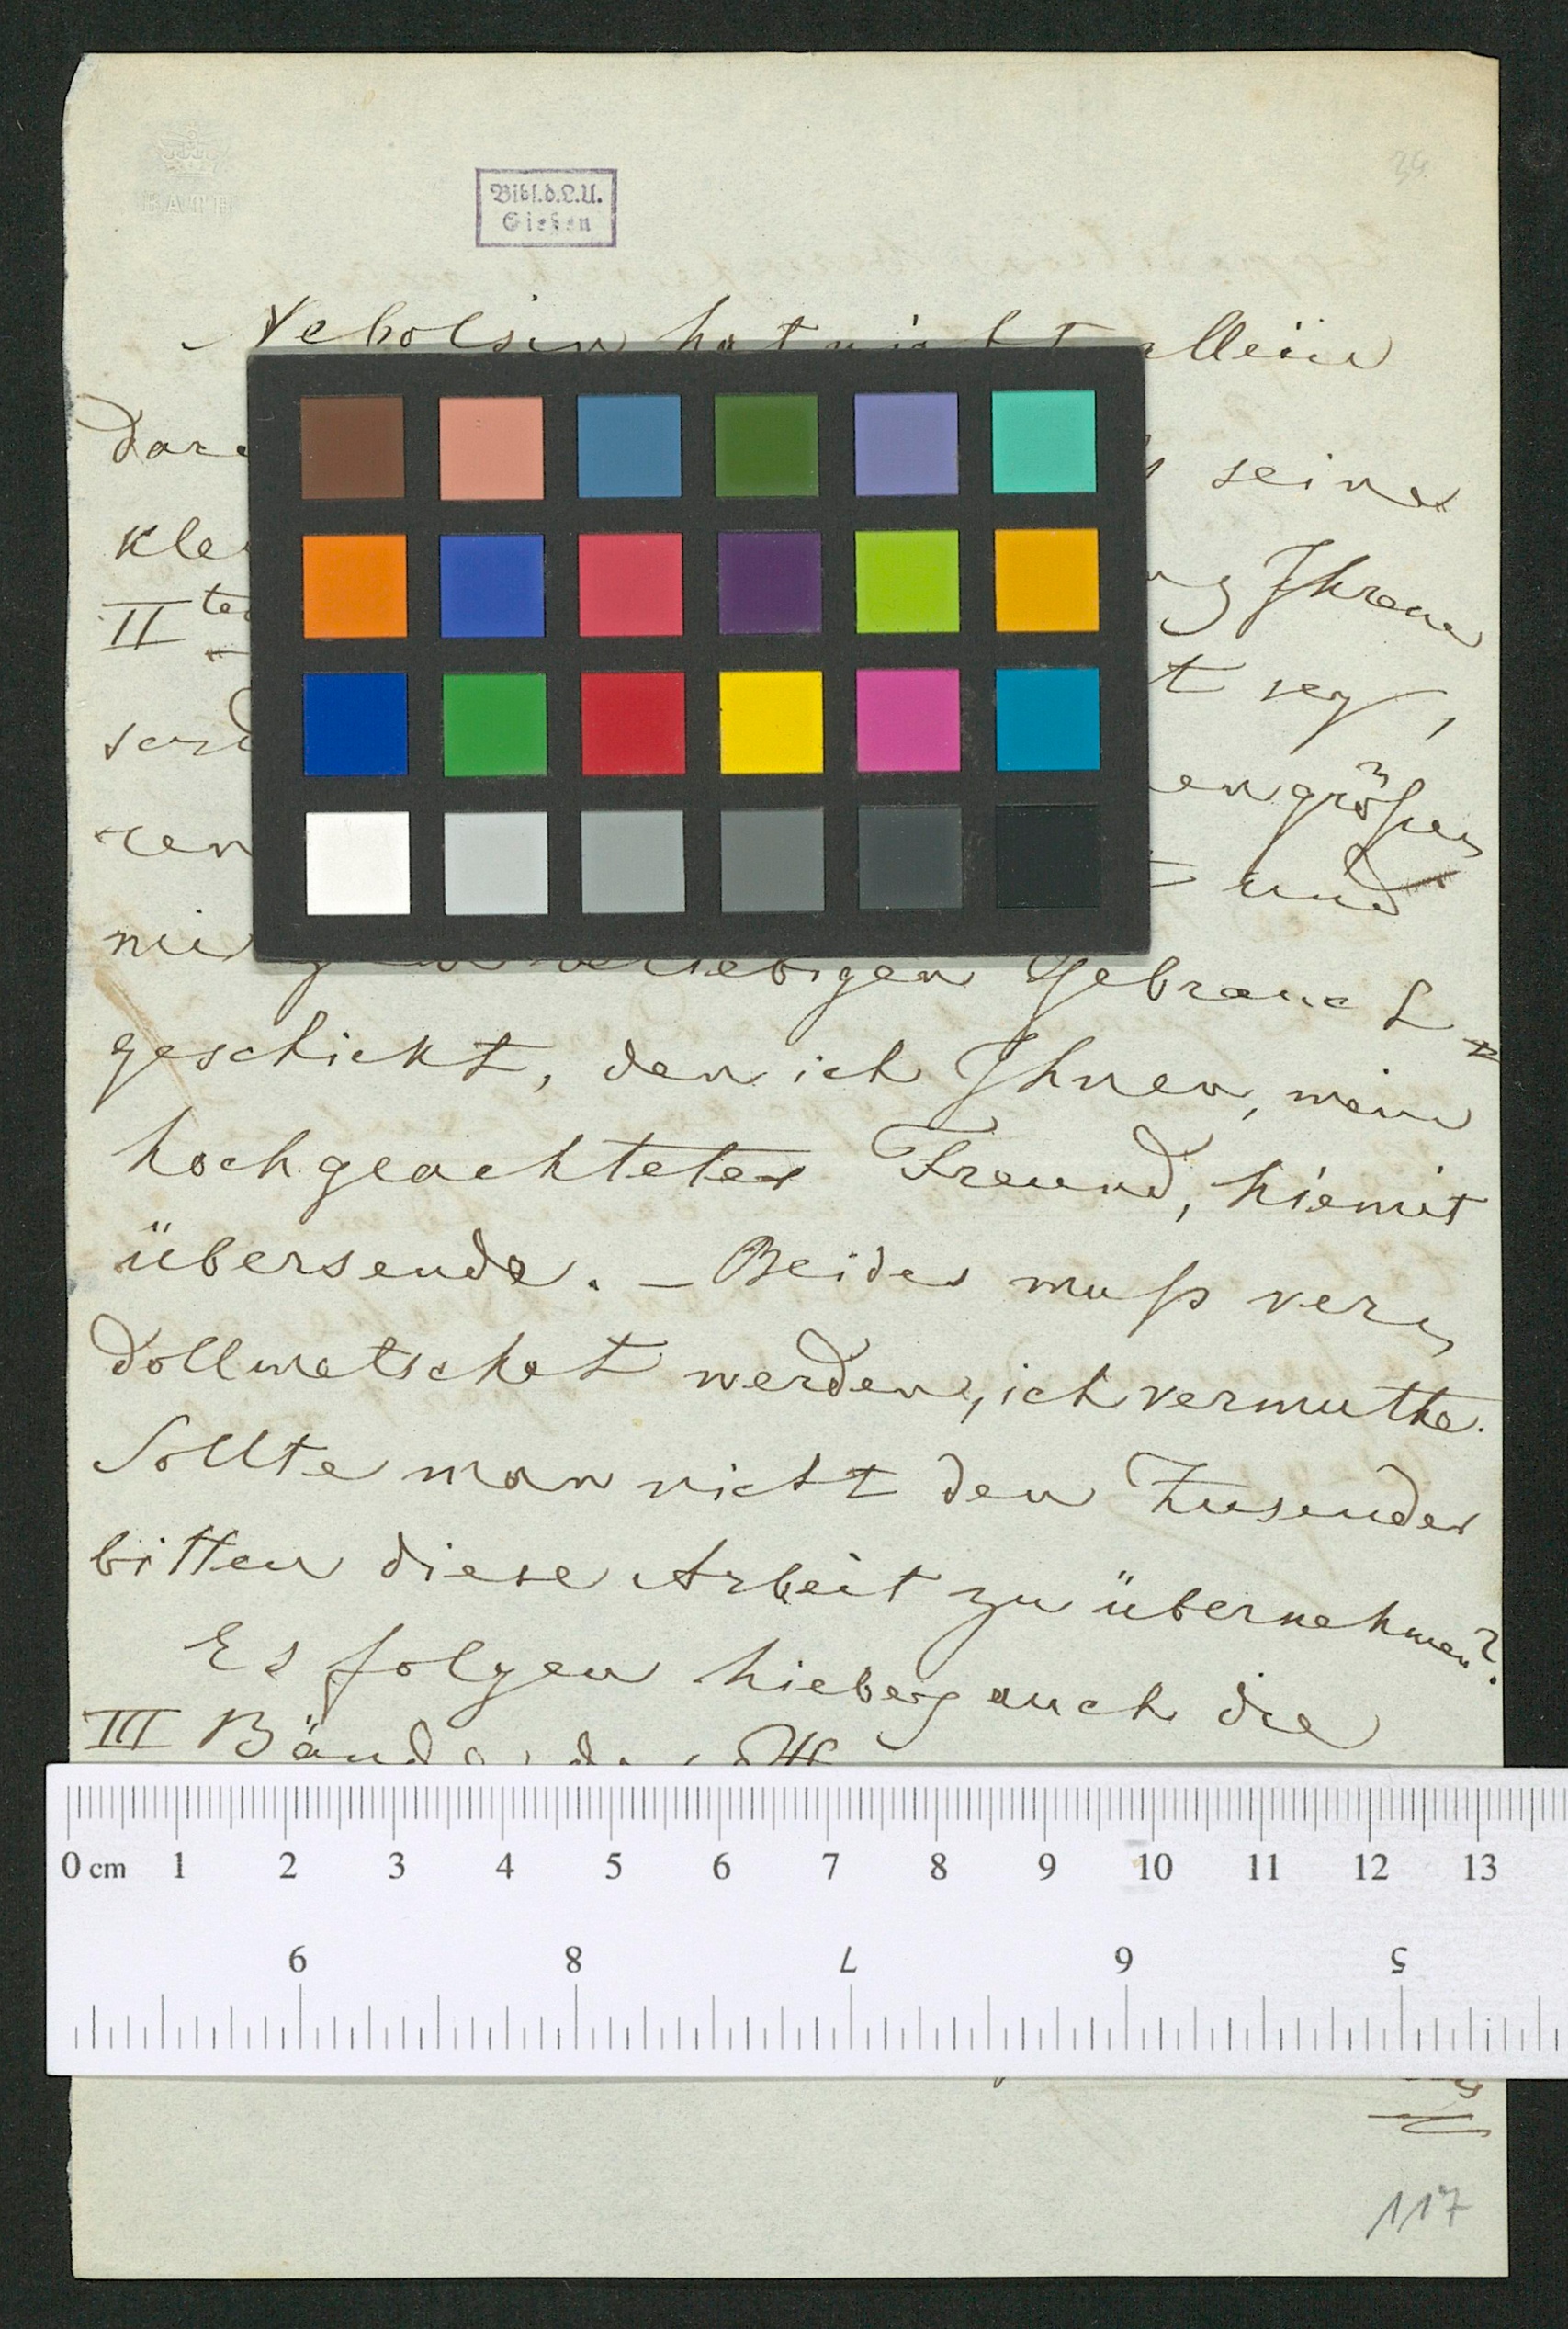 BATH
34.
Bibl.d.L.U.
Gießen
Nebolsin hat nicht allein
seines
Ihrem
IIten
t sey,
größe
und
beliebigen Gebrauch
geschickt, den ich Ihnen, mein
hochgeachteter Freund, hiemit
übersende. — Beides muß ver,
dollmetschet werden, ich vermuthe.
Sollte man nicht den Zusender
bitten diese Arbeit zu übernehmen?
Es folgen hiebey auch die
III Bände
0 cm 1 2 3 4 5 6 7 8 9 10 11 12 13
9 8 7 6 5
117